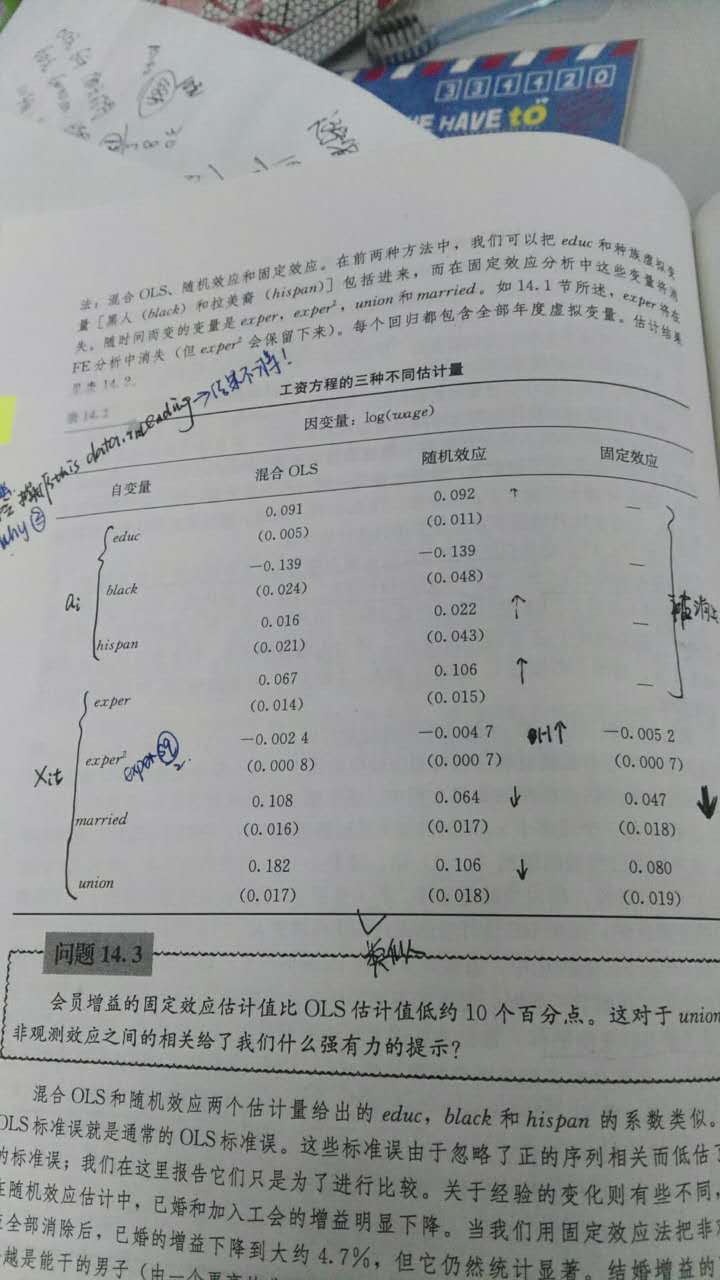 3 3 1 1 2 0
WE HAVE to
法:混合 OLS、随机效应和固定效应。在前两种方法中,我们可以把 educ 和种族虚拟变
量[黑人(black)和拉美裔(hispan)]包括进来,而在固定效应分析中这些变量将消
失。随时间而变的变量是 exper,exper²,union 和 married。如 14.1 节所述,exper 将在
FE 分析中消失(但 exper² 会保留下来)。每个回归都包含全部年度虚拟变量。估计结果
见表 14.2。
表 14.2
工资方程的三种不同估计量
因变量:log(wage)
自变量 混合 OLS 随机效应 固定效应
educ 0.091 0.092 ↑ —
(0.005) (0.011)
black −0.139 −0.139 —
(0.024) (0.048)
hispan 0.016 0.022 ↑ —
(0.021) (0.043)
exper 0.067 0.106 ↑ —
(0.014) (0.015)
exper² −0.002 4 −0.004 7 ↑ −0.005 2
(0.000 8) (0.000 7) (0.000 7)
married 0.108 0.064 ↓ 0.047 ↓
(0.016) (0.017) (0.018)
union 0.182 0.106 ↓ 0.080
(0.017) (0.018) (0.019)
why ②
this data
→结果不得!
ai
Xit
exper sq 2.
被消去
类似
问题 14.3
会员增益的固定效应估计值比 OLS 估计值低约 10 个百分点。这对于 union
非观测效应之间的相关给了我们什么强有力的提示?
混合 OLS 和随机效应两个估计量给出的 educ,black 和 hispan 的系数类似。
OLS 标准误就是通常的 OLS 标准误。这些标准误由于忽略了正的序列相关而低估了
的标准误;我们在这里报告它们只是为了进行比较。关于经验的变化则有些不同,
在随机效应估计中,已婚和加入工会的增益明显下降。当我们用固定效应法把非
应全部消除后,已婚的增益下降到大约 4.7%,但它仍然统计显著。结婚增益的
越是能干的男子(由一个更高的